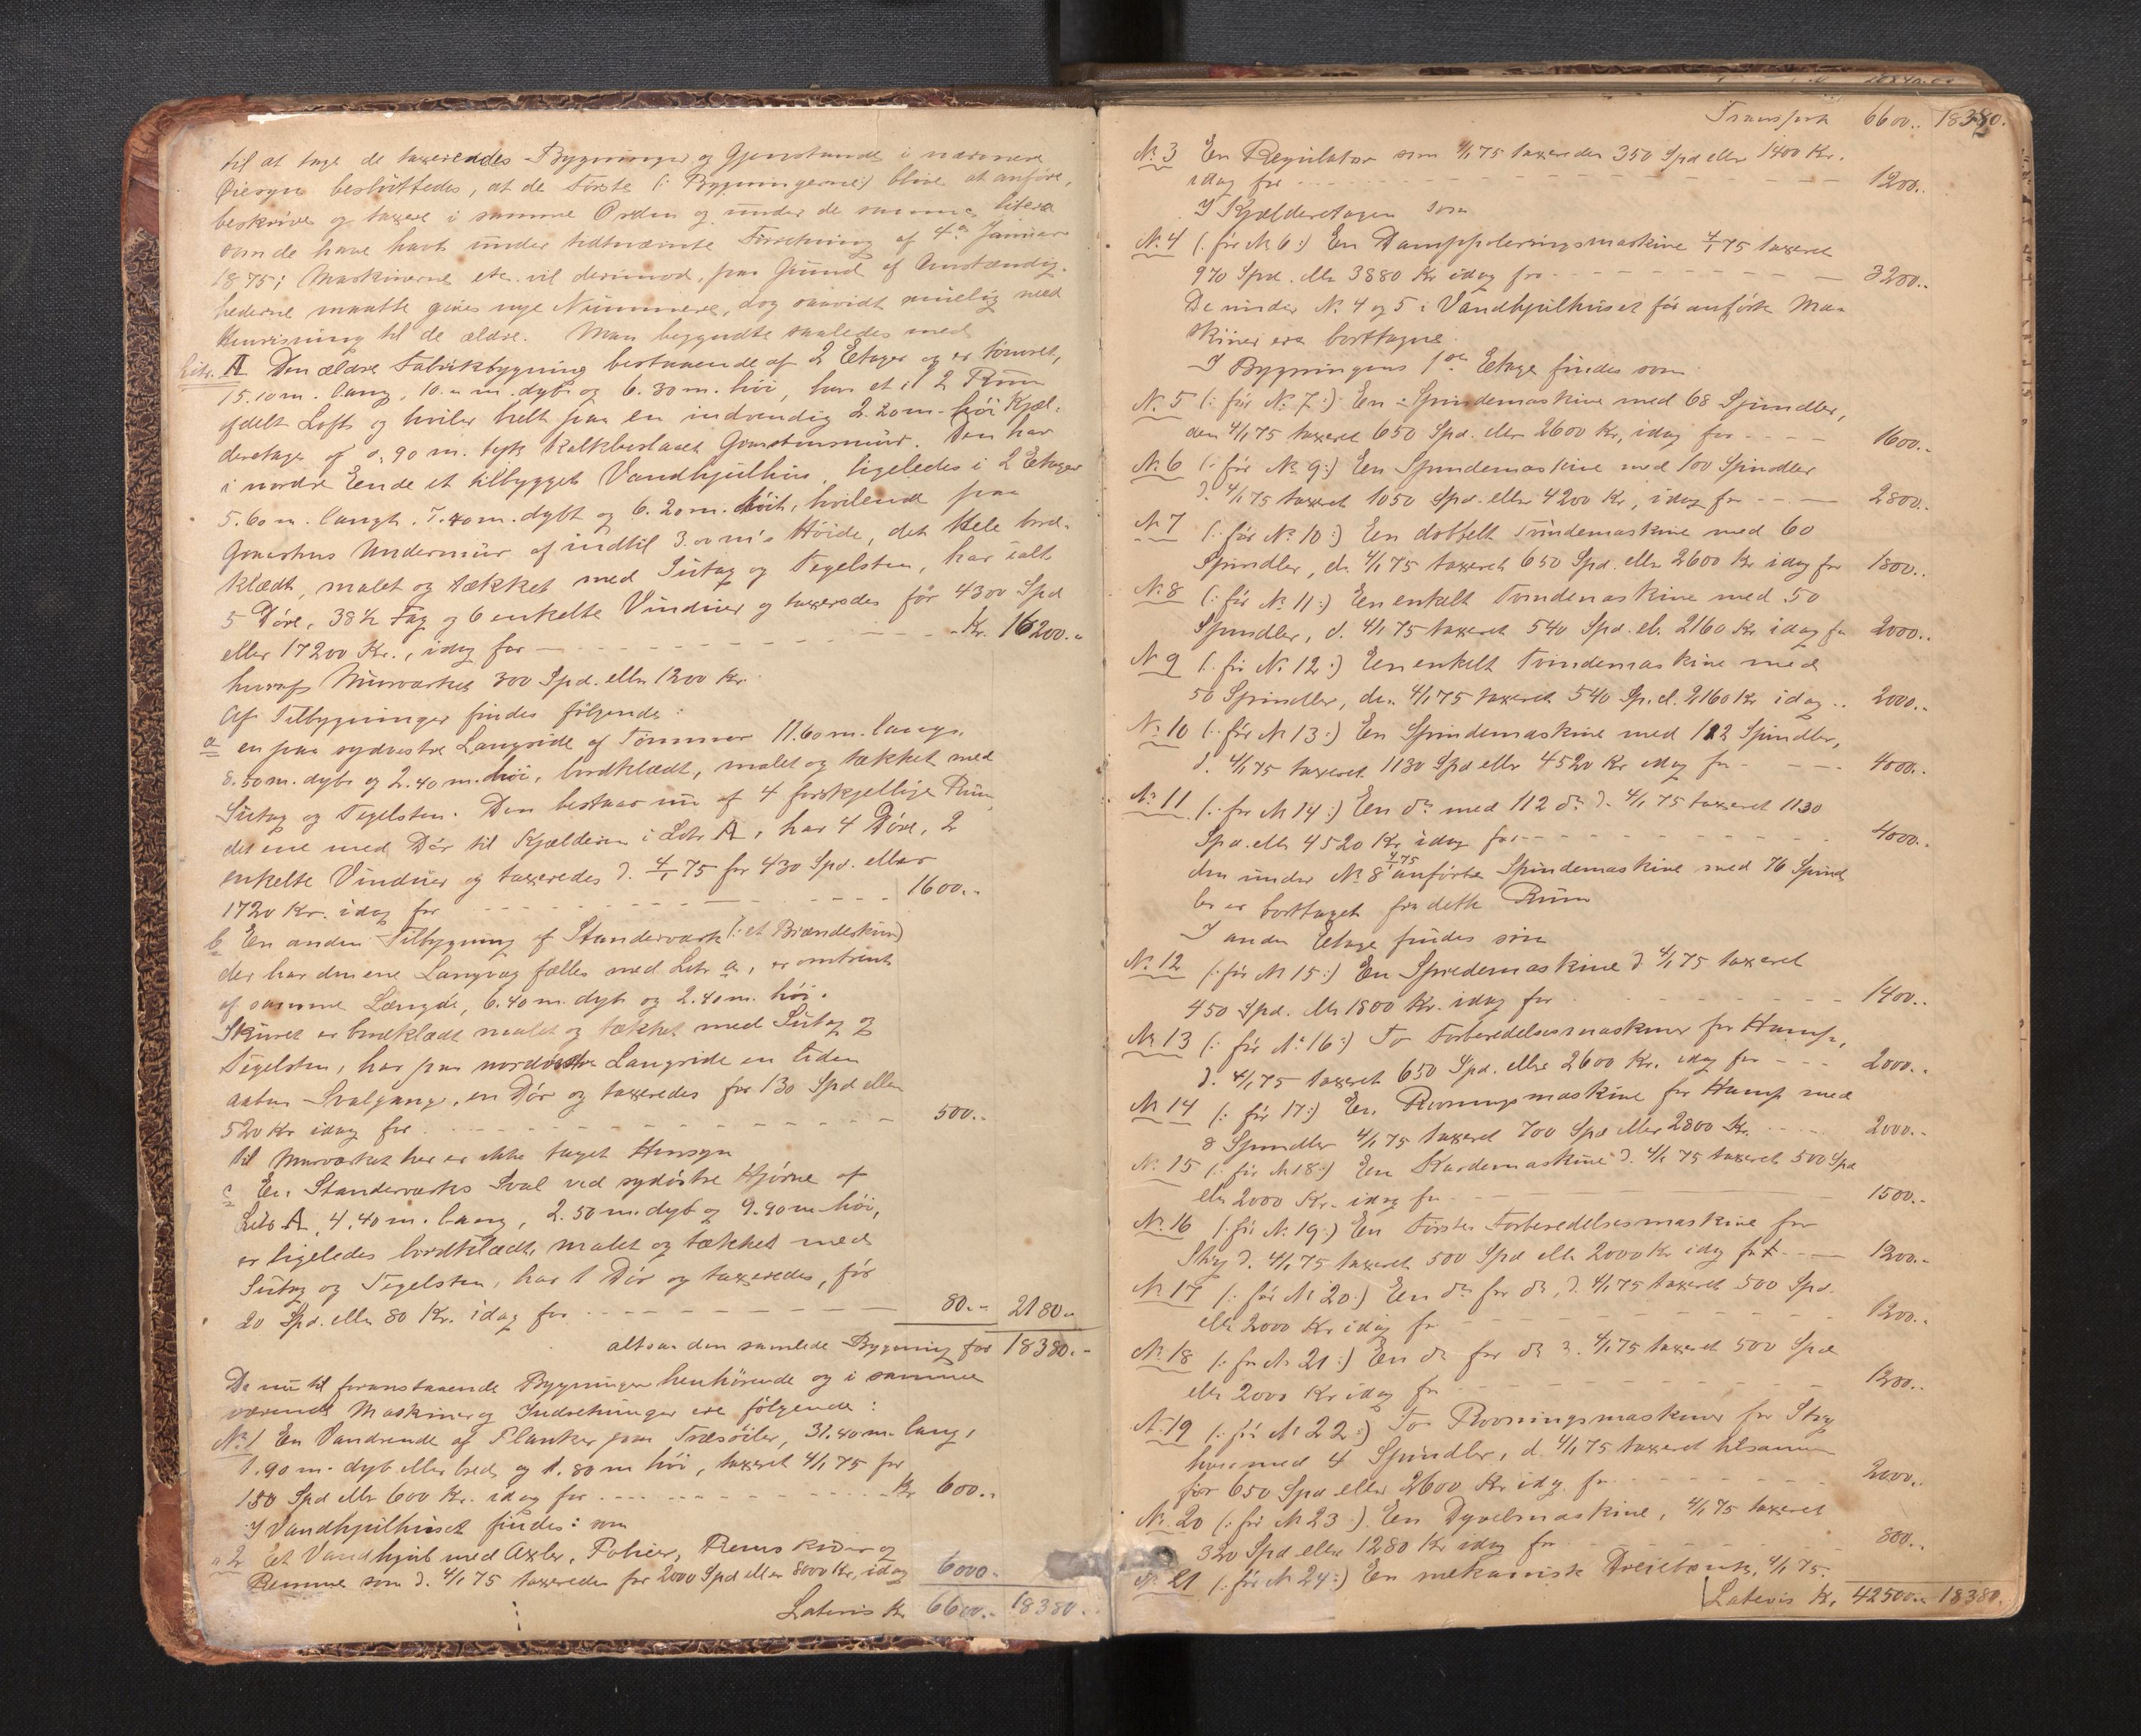 til at tage de taxerendes Bygninger og Gjenstande i nærmere
Øiesyn besluttedes, at de første (: Bygningerne:) blive at anføre,
beskrive og taxere i samme Orden og under de samme Litera
som de have havt under sidtnævnte Forretning af 4de Januar
1875; Maskinerne etc. vil derimod, paa Grund af Omstændig-
hederne maatte gives nye Nummere, dog saavidt muelig med
Henvisning til de ældre. Man begyndte saaledes med
Litr. A Den ældre Fabrikbygning bestaaende af 2 Etager og er tømret,
15.10 m. lang, 10. m. dyb og 6.30 m. høi, har et i 2 Rum
afdelt Loft og hviler helt paa en indvendig 2.20 m. høi Kjæl-
deretage af 0,90 m. tyk Kalkbeslaaet Graastensmuur. Den har
i nordre Eende et tilbygget Vandhjulhus, ligeledes i 2 Etager
5.60 m. langt, 7.40 m. dybt og 6.20 m. høit, hvilende paa
Graastens Undermuur af indtil 3.00 m's Høide, det Hele bord-
klædt, malet og tækket med Sutag og Tegelsten, har ialt
5 Døre, 38½ Fag og 6 enkelte Vinduer og taxeredes før 4300 Spd
eller 17200 Kr., idag for - - - Kr. 16200.-
hvoraf Muurværket 300 Spd. eller 1200 Kr.
Af Tilbygninger findes følgende:
a en paa sydvestre Langside af Tømmer 11.60 m. lang,
8.50 m. dyb og 2.40 m. høi, bordklædt, malet og tækket med
Sutag og Tegelsten. Den bestaar nu af 4 forskjellige Rum
det ene med Dør til Kjælderen i Litr A, har 4 Døre, 2
enkelte Vinduer og taxeredes d. 4/1 75 for 430 Spd. eller
1720 Kr. idag for - - - 1600.-
b En anden Tilbygning af Standerværk (: et Brændeskuur)
der har den ene Langvæg fælles med Litr a, er omtrent
af samme Længde, 6.40 m. dyb og 2.40 m. høi.
Skuret er bordklædt malet og tækket med Sutag og
Tegelsten, har paa nordøstre Langside en liden
aaben Svalgang, en Dør og taxeredes for 130 Spd eller
520 Kr idag for - - - 500.-
til Murværket her er ikke taget Hensyn
c En Standerværks Sval ved sydøstre Hjørne af
Litr A, 4.40 m. lang, 2.50 m. dyb og 9.90 m høi,
er ligeledes bordklædt, malet og tækket med
Sutag og Tegelsten, har 1 Dør og taxeredes, før
20 Spd. eller 80 Kr. idag for - - - 80.- 2180.-
altsaa den samlede Bygning for 18380.-
De nu til foranstaaende Bygninger henhørende og i samme
værende Maskiner og Indretninger ere følgende:
No. 1 En Vandrende af Planker paa Træsøiler, 31.40 m. lang,
1.90 m. dyb eller bred, og 1.80 m høi, taxeret 4/1 75 for
150 Spd eller 600 Kr. idag for - - - Kr 600.-
I Vandhjulhuset findes: som
" 2 Et Vandhjul med Axler, Poleier, Remskiver og
Remme som d. 4/1 75 taxeredes for 2000 Spd eller 8000 Kr, idag 6000.-
Lateris Kr 6600.- 18380.-
Transport 6600.. 18380.
No. 3 En Regulator som 4/1 75 taxeredes 350 Spd eller 1400 Kr.
idag for - - - 1200..
I Kjælderetagen som
No. 4 (: før No 6:) En Damppoleringsmaskine 4/1 75 taxeret
970 Spd. eller 3880 Kr idag for - - - 3200..
De under No. 4 og 5 i Vandhjulhuset før anførte Ma-
skiner ere borttagne.
I Bygningens 1ste Etage findes som
No. 5 (: før No. 7:) En Spindemaskine med 68 Spindler,
den 4/1 75 taxeret 650 Spd. eller 2600 Kr, idag for - - - 1600..
No. 6 (: før No. 9:) En Spindemaskine med 100 Spindler
d. 4/1 75 taxeret 1050 Spd. eller 4200 Kr, idag for - - - 2800..
No 7 (: før No. 10:) En dobbelt Tvindemaskine med 60
Spindler, d. 4/1 75 taxeret 650 Spd. eller 2600 Kr idag for 1800..
No. 8 (: før No. 11:) En enkelt Tvindemaskine med 50
Spindler, d. 4/1 75 taxeret 540 Spd. el. 2160 Kr idag for 2000..
No 9 (: før No. 12:) En enkelt Tvindemaskine med
50 Spindler, den 4/1 75 taxeret 540 Sp. el. 2160 Kr idag .. 2000..
No. 10 (: før No 13:) En Spindemaskine med 112 Spindler,
d. 4/1 75 taxeret 1130 Spd eller 4520 Kr idag for - - - 4000..
No. 11 (: før No 14:) En do med 112 do d. 4/1 75 taxeret 1130
Spd. eller 4520 Kr idag for - - - 4000..
den under No. 8 4/1 75 anførte Spindemaskine med 76 Spind-
ler er borttaget fra dette Rum
I anden Etage findes som
No. 12 (: før No 15:) En Spredemaskine d 4/1 75 taxeret
450 Spd. eller 1800 Kr. idag for - - - 1400..
No 13 (: før No. 16:) To Forberedelsesmaskiner for Hamp,
d. 4/1 75 taxeret 650 Spd. eller 2600 Kr. idag for - - - 2000..
No 14 (: før 17:) En Rovningsmaskine for Hamp med
8 Spindler 4/1 75 taxeret 700 Spd eller 2800 Kr. - - - 2000.-
No. 15 (: før No 18:) En Kardemaskine d. 4/1 75 taxeret 500 Spd
eller 2000 Kr. idag for - - - 1500.-
No. 16 (: før No. 19:) En første Forberedelsesmaskine for
Stry d. 4/1 75 taxeret 500 Spd eller 2000 Kr idag for - - - 1200.-
No. 17 (: før No 20:) En do for do, d. 4/1 75 taxeret 500 Spd.
eller 2000 Kr idag for - - - 1200..
No. 18 (: før No 21:) En do for do d. 4/1 75 taxeret 500 Spd
eller 2000 Kr idag for - - - 1200..
No. 19 (: før No 22:) To Rovningsmaskiner for Stry
hver med 4 Spindler, d. 4/1 75 taxeret tilsammen
for 650 Spd eller 2600 Kr idag for - - - 2000..
No. 20 (: før No 23:). En Dyvelmaskine, 4/1 75 taxeret
320 Spd eller 1280 Kr idag for - - - 800..
No. 21 (: før No 24:) En mekanisk Dreiebænk, 4/1 75.
Lateris Kr. 42500.- 18380.